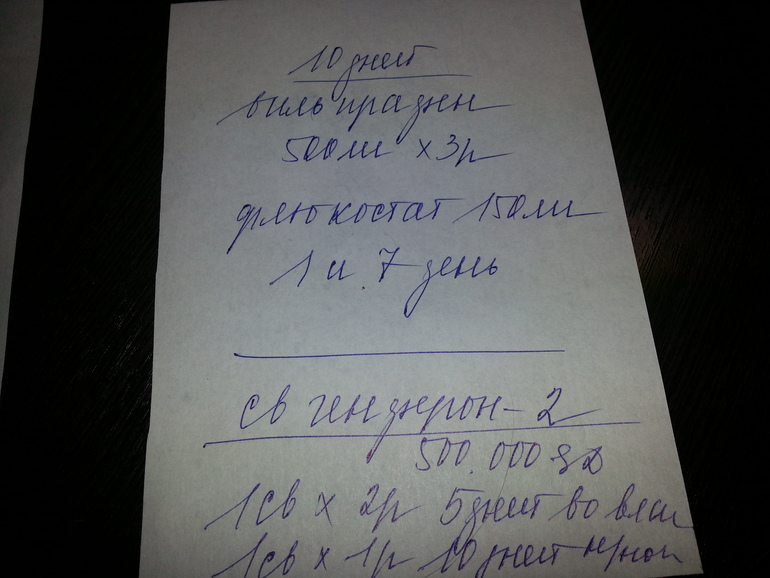 10 дней
вильпрафен
500мг x 3р
флюкостат 150мг
1 и 7 день
св генферон - 2
500.000 ЕД
1св x 2р 5 дней во влаг
1св x 1р 10 дней